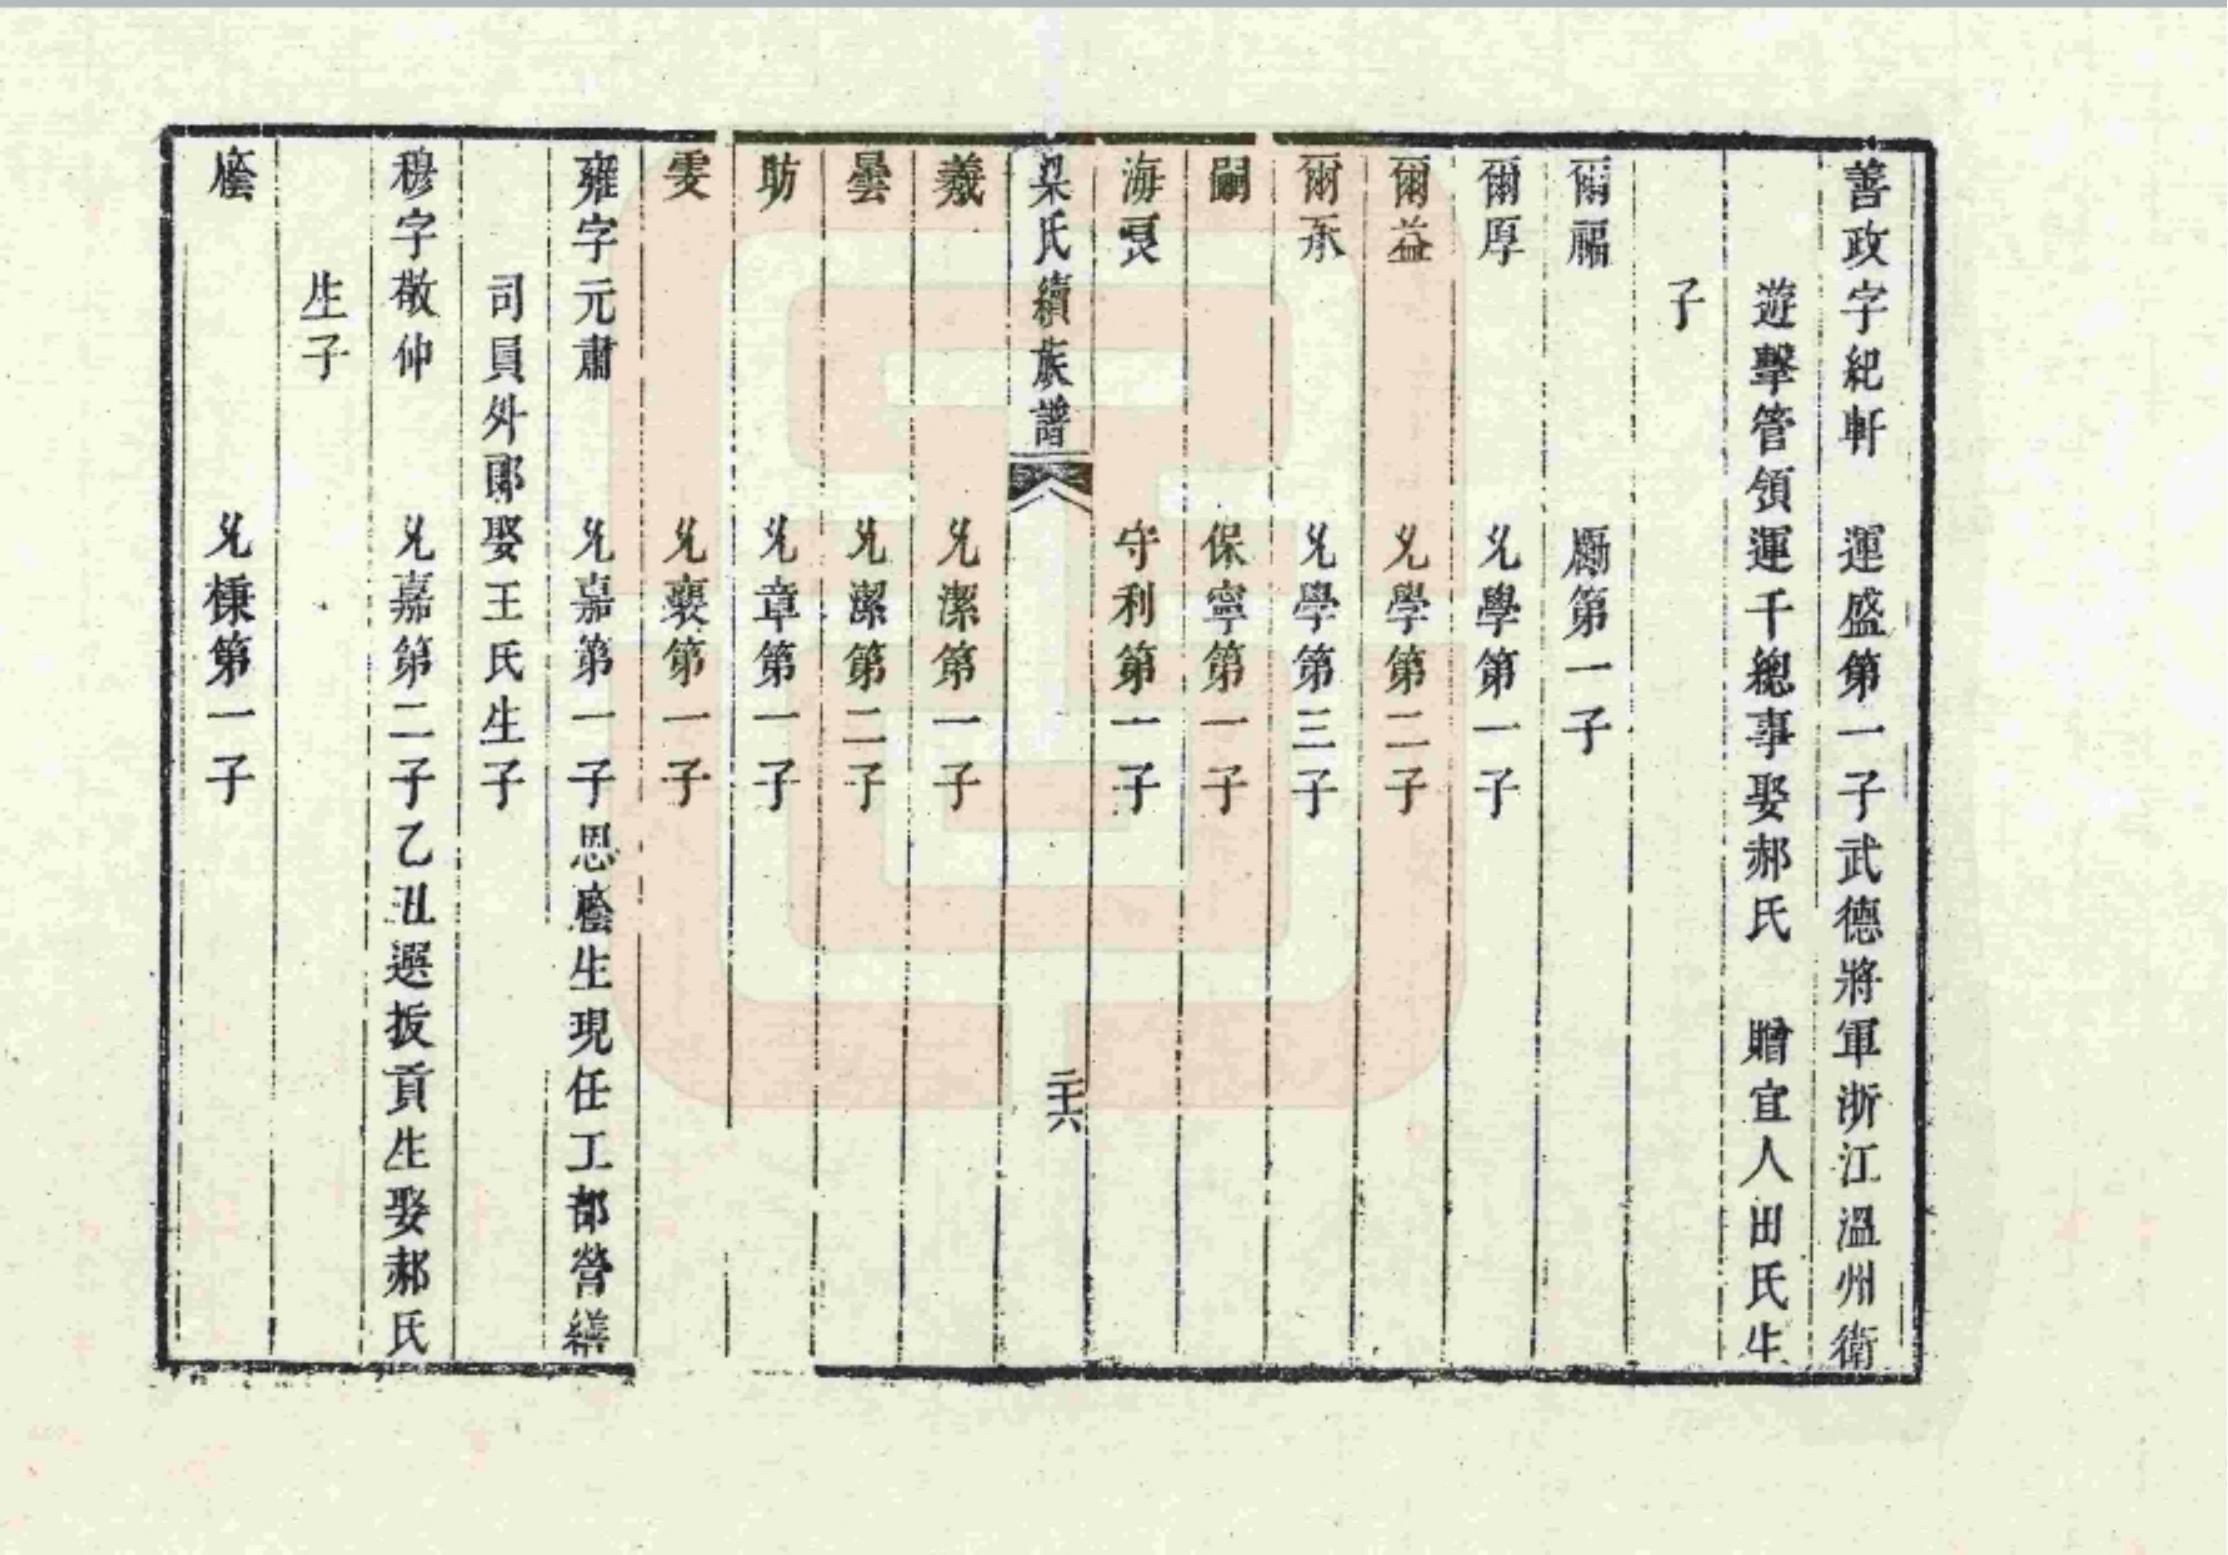 善政字紀軒　運盛第一子武德將軍浙江溫州衛
遊擊管領運千總事娶郝氏　贈宜人田氏生
子
爾福　勵第一子
爾厚　允學第一子
爾益　允學第二子
爾承　允學第三子
嗣　保寧第一子
海長　守利第一子
梁氏續族譜　二十六
羲　允潔第一子
曇　允潔第二子
昉　允章第一子
雯　允裴第一子
雍字元肅　允嘉第一子恩廕生現任工部營繕
司員外郞娶王氏生子
穆字敬仲　允嘉第二子乙丑選拔貢生娶郝氏
生子
廕　允楝第一子